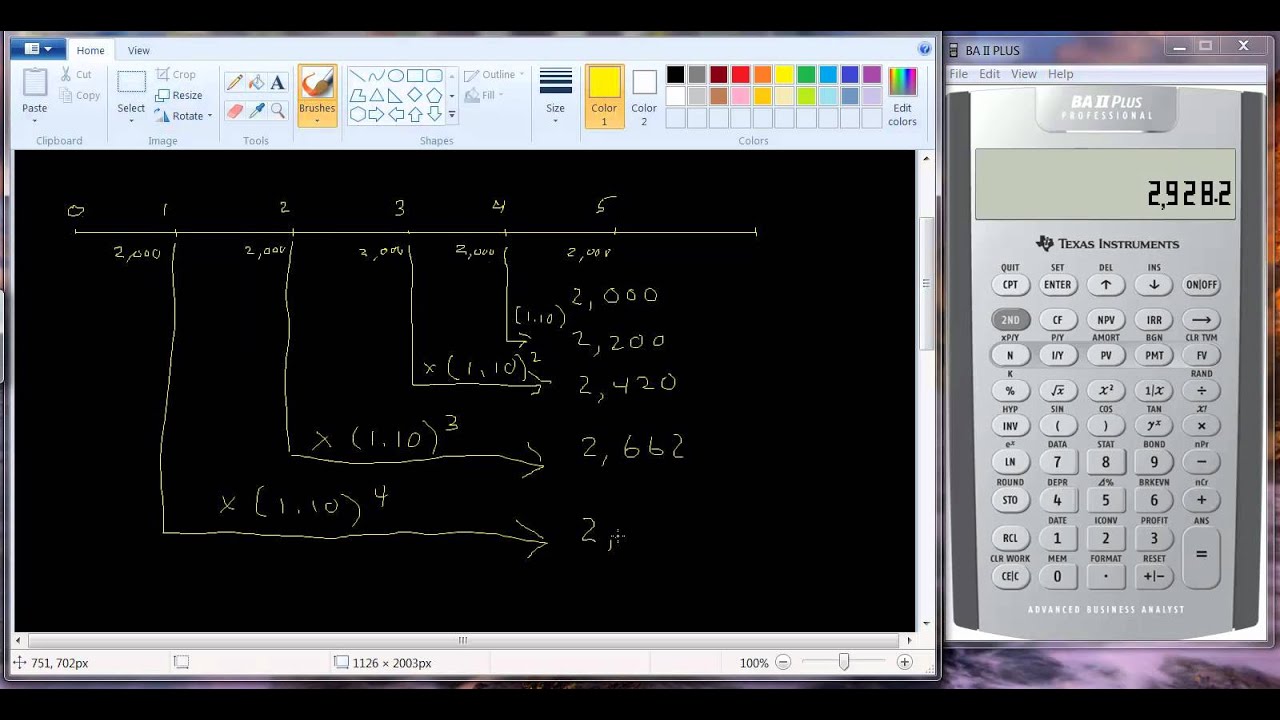 BA II PLUS
Home View
File Edit View Help
Paste
Cut
Copy
Clipboard
Select
Crop
Resize
Rotate
Image
Tools
Brushes
Shapes
Outline
Fill
Size
Color 1
Color 2
Edit colors
Colors
0 1 2 3 4 5
2,000 2,000 2,000 2,000 2,000
2,000
(1.10)
2,200
x (1.10)2
2,420
x (1.10)3
2,662
x (1.10)4
2,
751, 702px
1126 × 2003px
100%
BA II PLUS
PROFESSIONAL
2,928.2
TEXAS INSTRUMENTS
QUIT SET DEL INS
CPT ENTER ↑ ↓ ON|OFF
2ND CF NPV IRR →
xP/Y P/Y AMORT BGN CLR TVM
N I/Y PV PMT FV
K RAND
% √x x² 1/x ÷
HYP SIN COS TAN x!
INV ( ) yˣ ×
eˣ DATA STAT BOND nPr
LN 7 8 9 −
ROUND DEPR Δ% BRKEVN nCr
STO 4 5 6 +
DATE ICONV PROFIT ANS
RCL 1 2 3 =
CLR WORK MEM FORMAT RESET
CE|C 0 . +|−
ADVANCED BUSINESS ANALYST